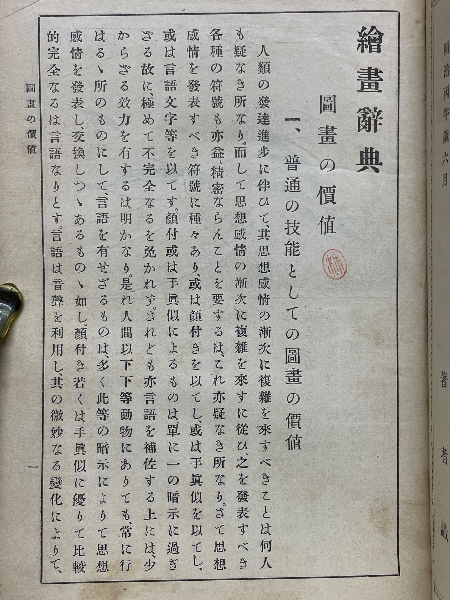 明治四年歳六月
著者識
繪畫辭典
圖畫の價値
一、普通の技能としての圖畫の價値
人類の發達進步に伴ひて、其思想感情の漸次に複雜を來すべきことは何人
も疑なき所なり。而して思想感情の漸次に複雜を來すに從ひ、之を發表すべき
各種の符號も亦益精密ならんことを要するは、これ亦疑なき所なり。さて思想
感情を發表すべき符號に種々あり、或は顏付きを以てし、或は手眞似を以てし、
或は言語文字等を以てす。顏付或は手眞似によるものは單に一の暗示に過ぎ
ざる故に、極めて不完全なるを免かれず。されども亦言語を補佐する上には、少
からざる效力を有するは明かなり。是れ人間以下下等動物にありても、常に行
はるゝ所のものにして、言語を有せざるものは、多く此等の暗示によりて思想
感情を發表し交換しつゝあるものゝ如し。顏付き若くは手眞似に優りて比較
的完全なるは言語なりとす。言語は言聲を利用し其の微妙なる變化によりて、
圖畫の價値
一